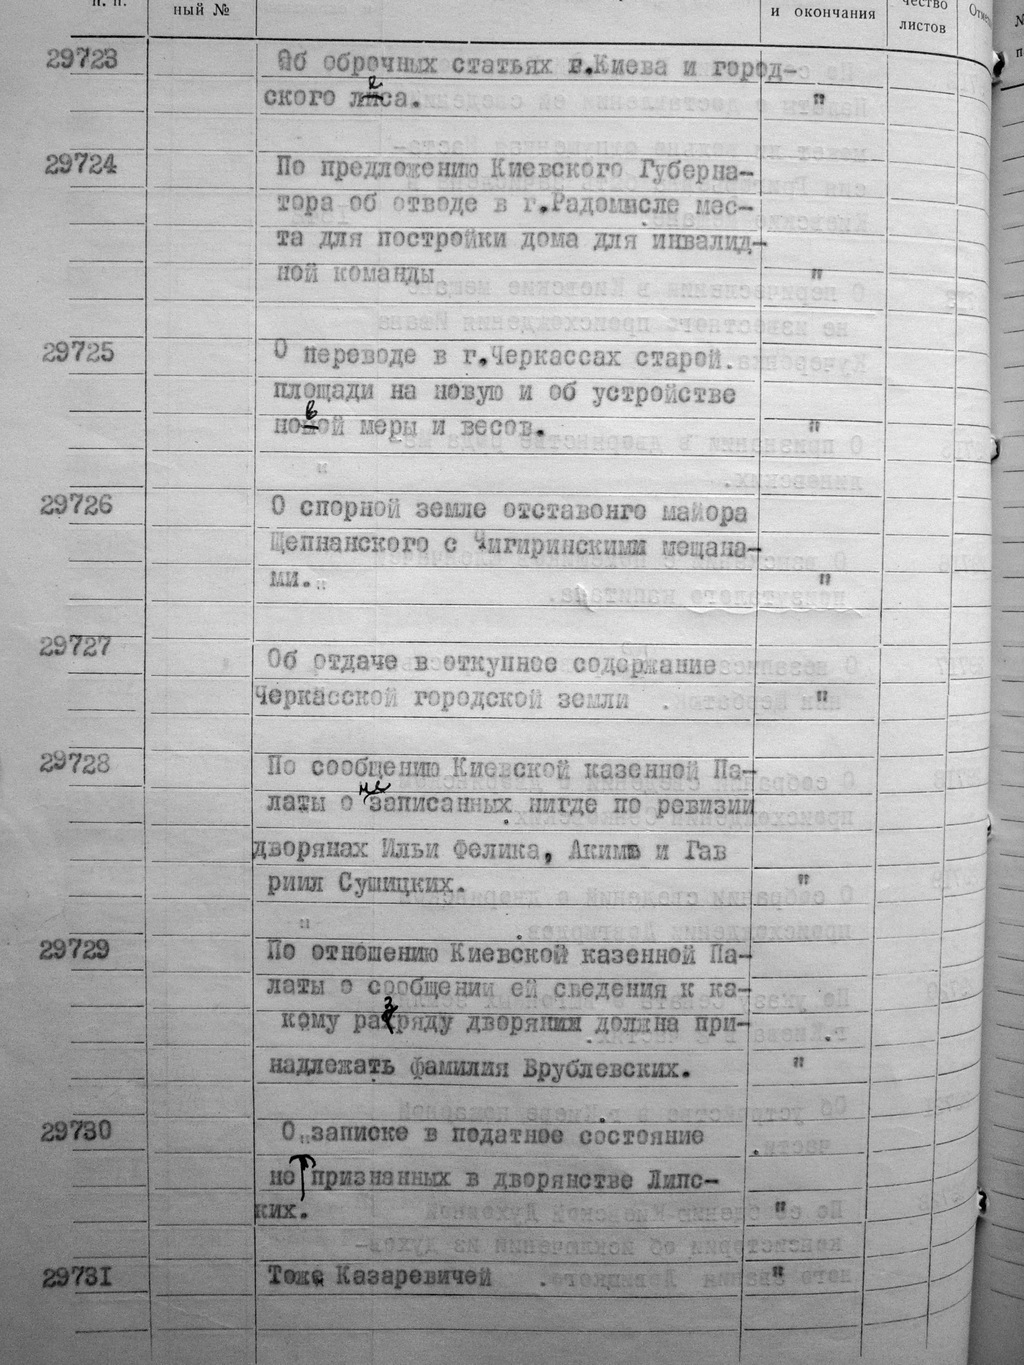 п. п.
ный №
и окончания
чество
листов
29723 Об оброчных статьях г.Киева и город-
ского леса. "
29724 По предложению Киевского Губерна-
тора об отводе в г.Радомисле мес-
та для постройки дома для инвалид-
ной команды "
29725 О переводе в г.Черкассах старой
площади на новую и об устройстве
новой меры и весов. "
29726 О спорной земле отставонго майора
Щепнанского с Чигиринскими мещана-
ми. "
29727 Об отдаче в откупное содержание
Черкасской городской земли . "
29728 По сообщению Киевской казенной Па-
латы о не записанных нигде по ревизии
дворянах Ильи Фелика, Акима и Гав
риил Сушицких. "
29729 По отношению Киевской казенной Па-
латы о сообщении ей сведения к ка-
кому разряду дворянин должна при-
надлежать фамилия Врублевских. "
29730 О записке в податное состояние
не признанных в дворянстве Липс-
ких. "
29731 Тоже Казаревичей . "